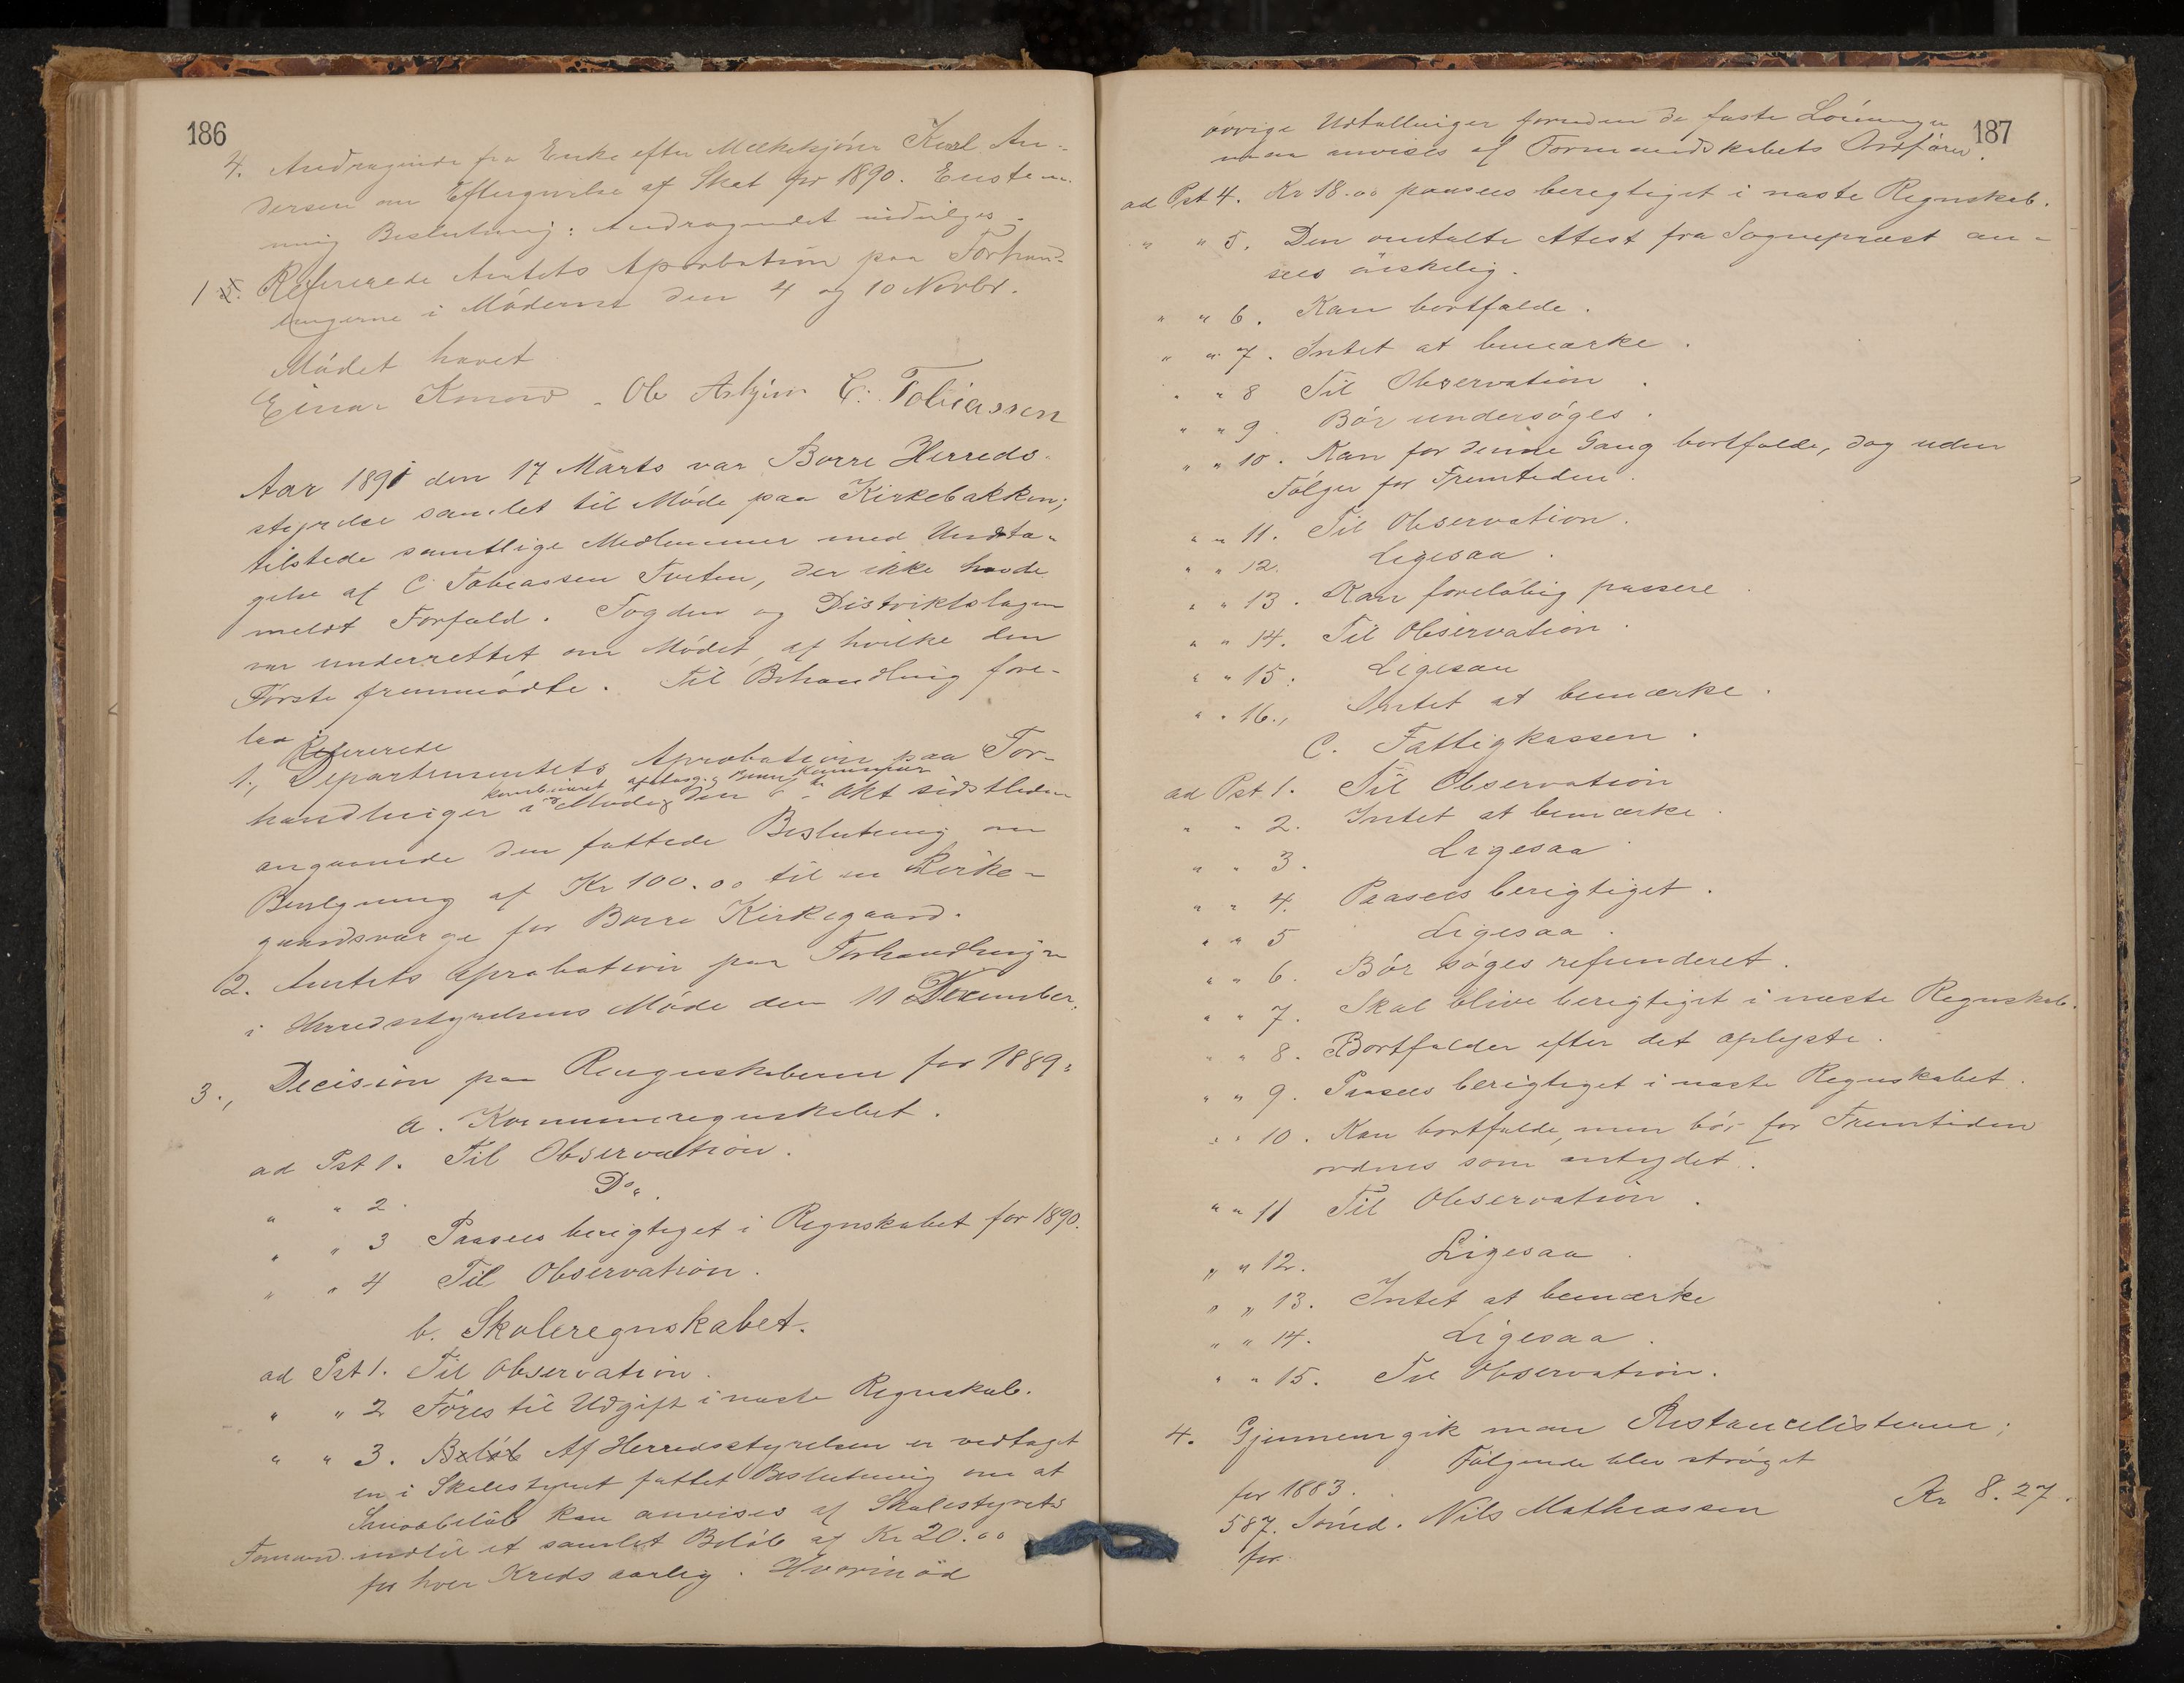 186
4. Andragende fra Enke efter Mælkekjører Karl An-
dersen om Eftergivelse af Skat for 1890. Enstem-
mig Beslutning: Andragendet indvilges.
1 5. Refererede Amtets Aprobation paa Forhand-
lingerne i Møderne den 4 og 10 Novbr.
Mødet hævet
Einar Konow. Ole C. Tobiassen
Aar 1891 den 17 Marts var Borre Herreds-
styrelse samlet til Møde paa Kirkebakken;
tilstede samtlige Medlemmer med Undta-
gelse af C Tobiassen Tveten, der ikke havde
meldt Forfald. Fogden og Distriktslægen
var underrettet om Mødet, af hvilke den
Første fremmødte. Til Behandling fore-
laa
Refererede
1., Departementets Aprobation paa For-
handlinger i Møde den 6 Okt sidstleden
angaaende den fattede Beslutning om
Bevilgning af Kr 100.00 til en Kirke-
gaardsværge for Borre Kirkegaard.
2. Amtets Aprobation paa Forhandlingen
i Herredsstyrelsens Møde den 11 December.
3., Decision paa Rengnskaberne for 1889:
a. Kommuneregnskabet.
ad Pst 1. Til Observation.
" " 2. Do.
" " 3 Paasees berigtiget i Regnskabet for 1890.
" " 4 Til Observation.
b. Skoleregnskabet.
ad Pst 1. Til Observation.
" " 2 Føres til Udgift i næste Regnskab.
" " 3. Beløb Af Herredsstyrelsen er vedtaget
en i Skolestyret fattet Beslutning om at
Smaabeløb kan anvises af Skolestyrets
Formand indtil et samlet Beløb af Kr 20.00
for hver Kreds aarlig. Hvorimod
187
øvrige Udtællinger foruden de faste Lønninger
maa anvises af Formandskabets Ordfører.
ad Pst 4. Kr 18.00 paasees beregtiget i næste Regnskab.
" " 5. Den omtalte Attest fra Sognepræst an-
sees ønskelig.
" " 6. Kan bortfalde.
" " 7. Intet at bemærke.
" " 8 Til Observation.
" " 9. Bør undersøges.
" " 10. Kan for denne Gang bortfalde, dog uden
Følger for Fremtiden.
" " 11. Til Observation.
" " 12. Ligesaa.
" " 13. Kan foreløbig passere.
" " 14. Til Observation.
" " 15. Ligesaa
" " 16., Intet at bemærke.
C. Fattigkassen.
ad Pst 1. Til Observation
" " 2. Intet at bemærke.
" " 3. Ligesaa
" " 4. Paasees berigtiget.
" " 5 Ligesaa.
" " 6. Bør søges refunderet.
" " 7. Skal blive berigtiget i næste Regnskab.
" " 8. Bortfalder efter det oplyste.
" " 9. Paasees berigtiget i næste Regnskabet.
" " 10. Kan bortfalde, men bør for Fremtiden
ordnes som antydet.
" " 11 Til Observation.
" " 12. Ligesaa.
" " 13. Intet at bemærke
" " 14. Ligesaa.
" " 15. Til Observation.
4. Gjennemgik man Restancelisterne;
Følgende blev strøget
for 1883.
587. Smed. Nils Mathiassen Kr 8.27.
for